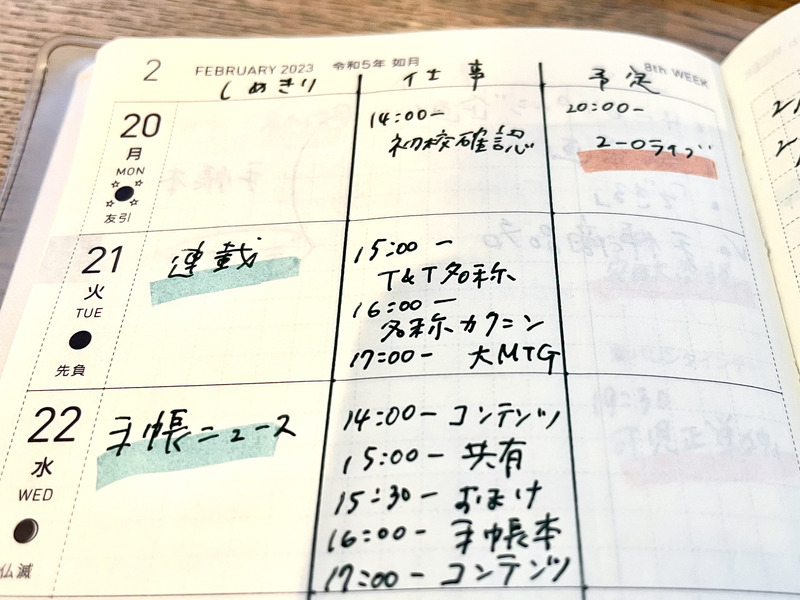 2 FEBRUARY 2023 令和5年 如月 8th WEEK
しめきり 仕事 予定
20 月 MON 友引
14:00-
初校確認
20:00-
ニーロライブ
21 火 TUE 先負
連載
15:00-
T&T名称
16:00-
名称カクニン
17:00- 大MTG
22 水 WED 仏滅
手帳ニュース
14:00- コンテンツ
15:00- 共有
15:30- おまけ
16:00- 手帳本
17:00- コンテンツ